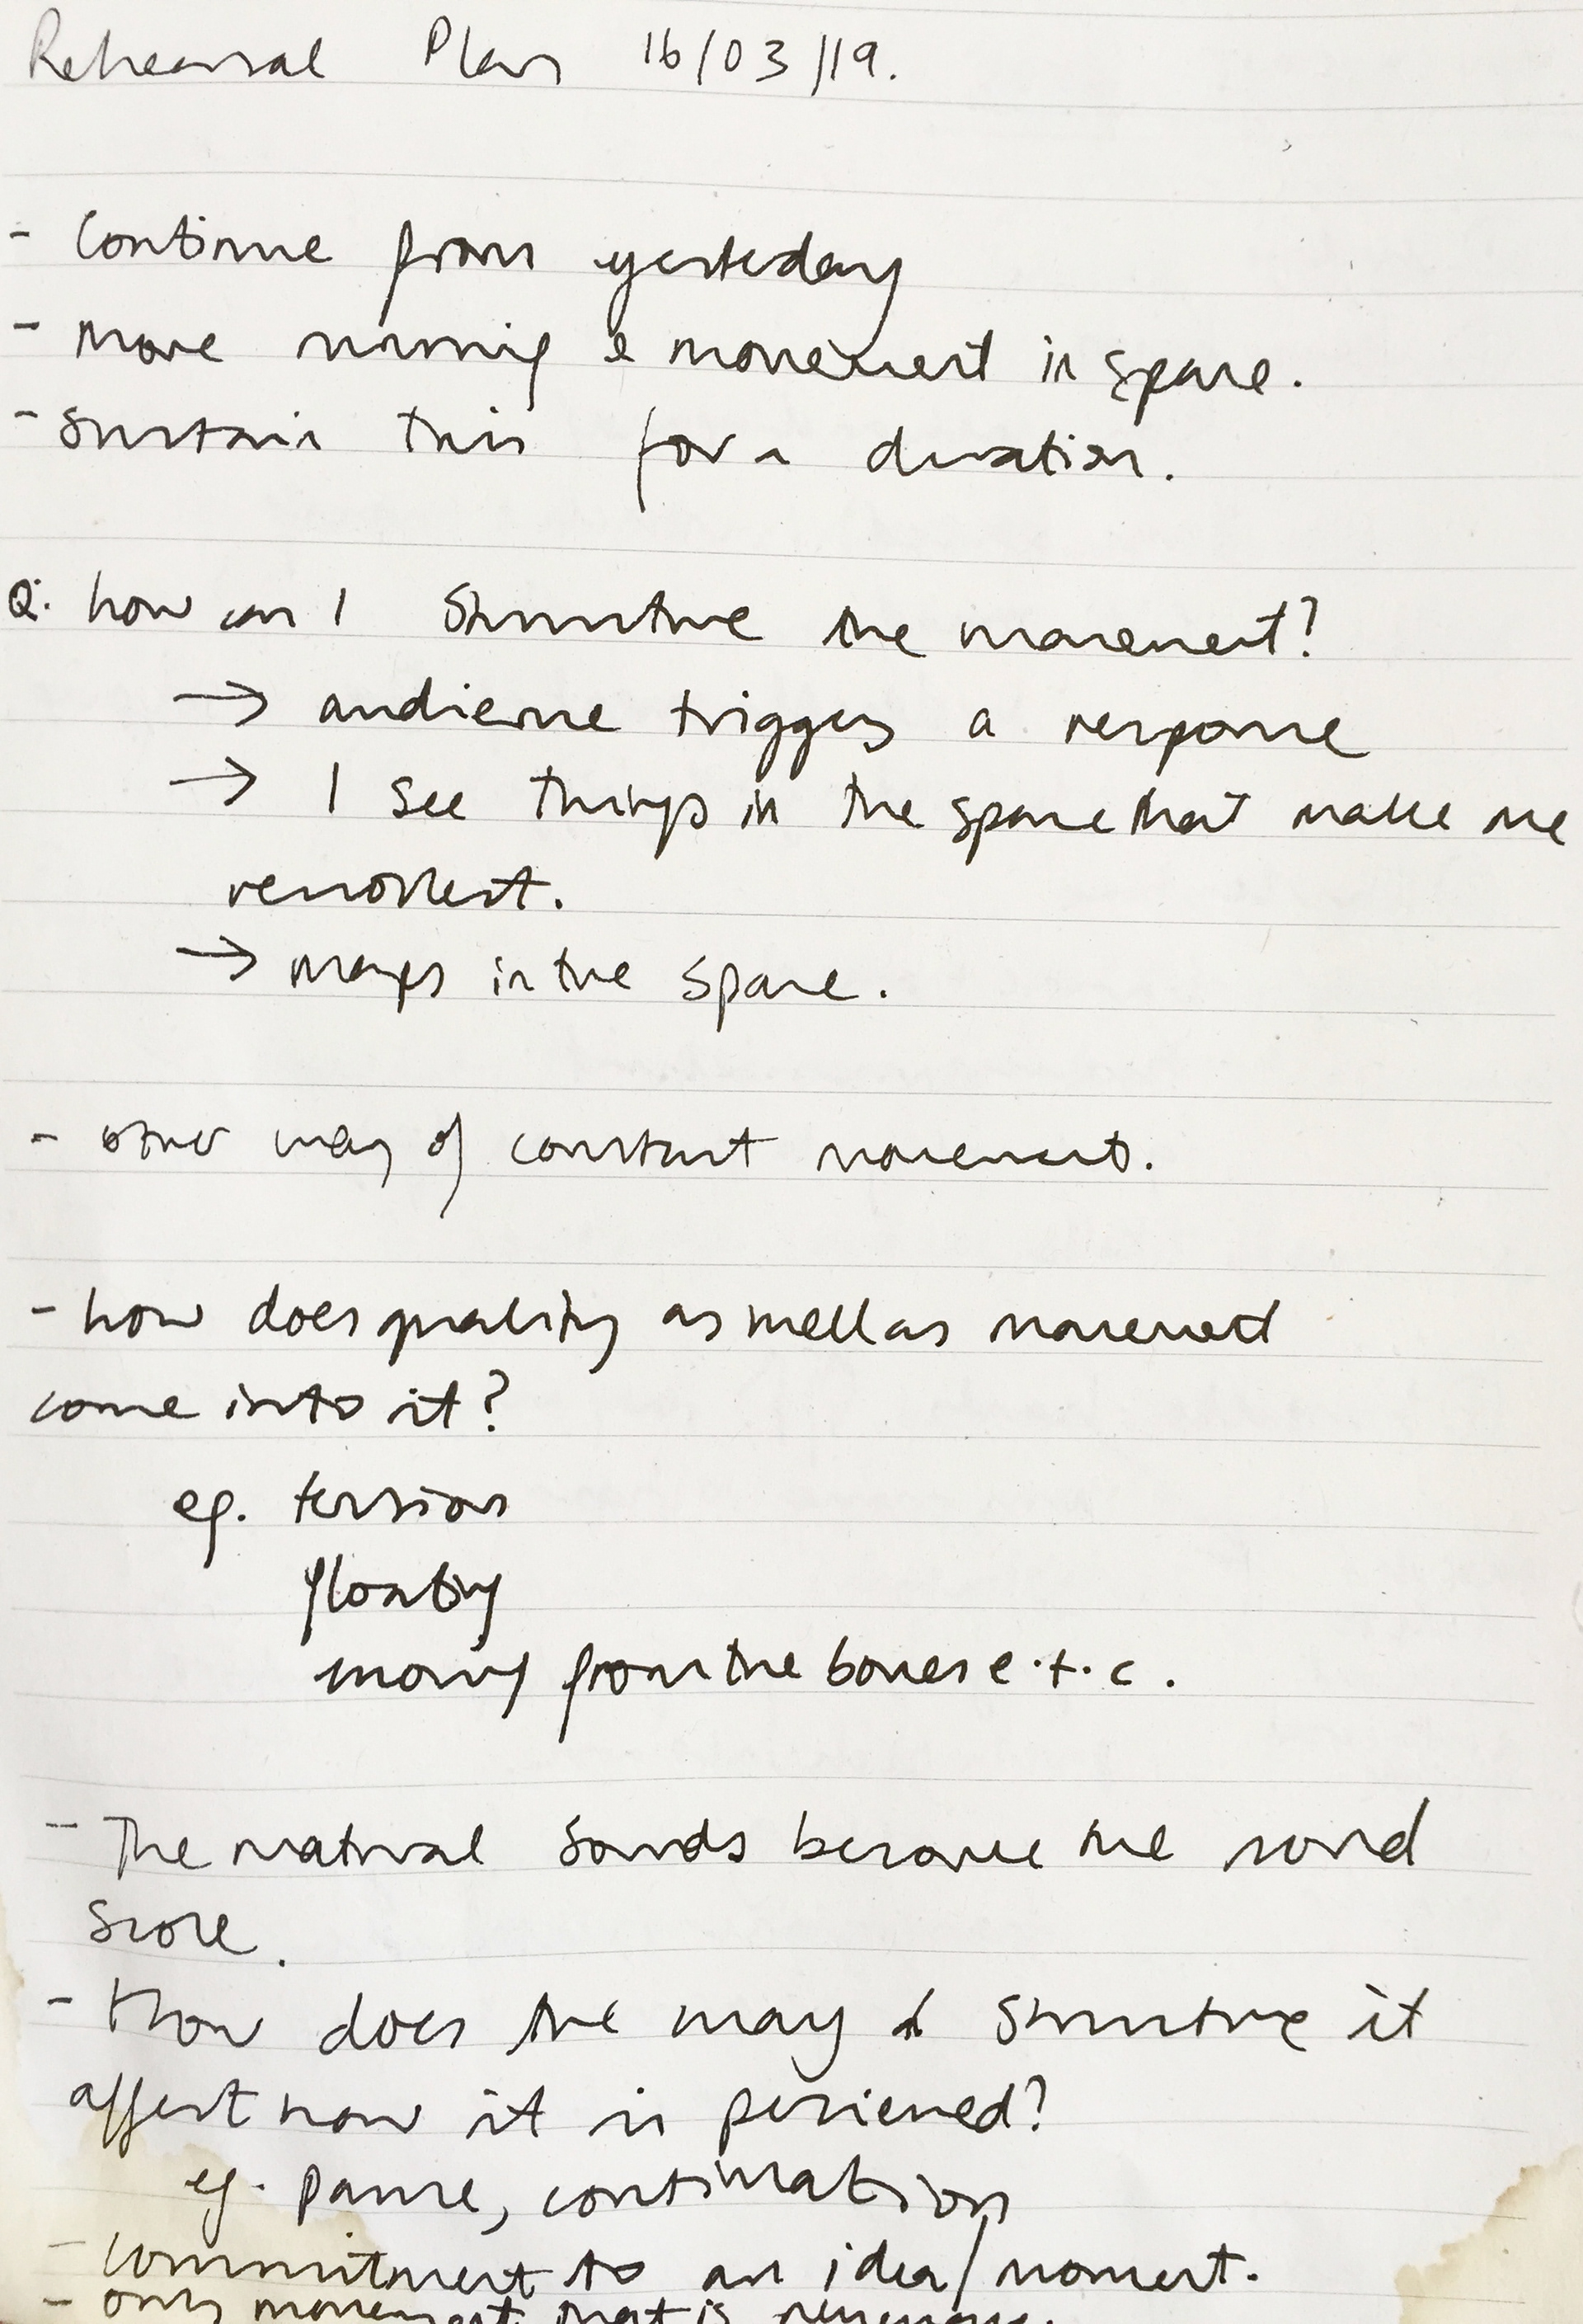 Rehearsal Plan 16/03/19.
- Continue from yesterday
- More running & movement in space.
- Sustain this for a duration.
Q: how can I structure the movement?
→ audience triggers a response
→ I see things in the space that make me
recollect.
→ maps in the space.
- other way of constant movement.
- how does quality as well as movement
come into it?
eg. tension
floaty
moving from the bones e.t.c.
- The natural sounds become the sound
score.
- How does the way I structure it
affect how it is perceived?
eg. pause, continuation
- commitment to an idea/moment.
- only movement that is necessary.